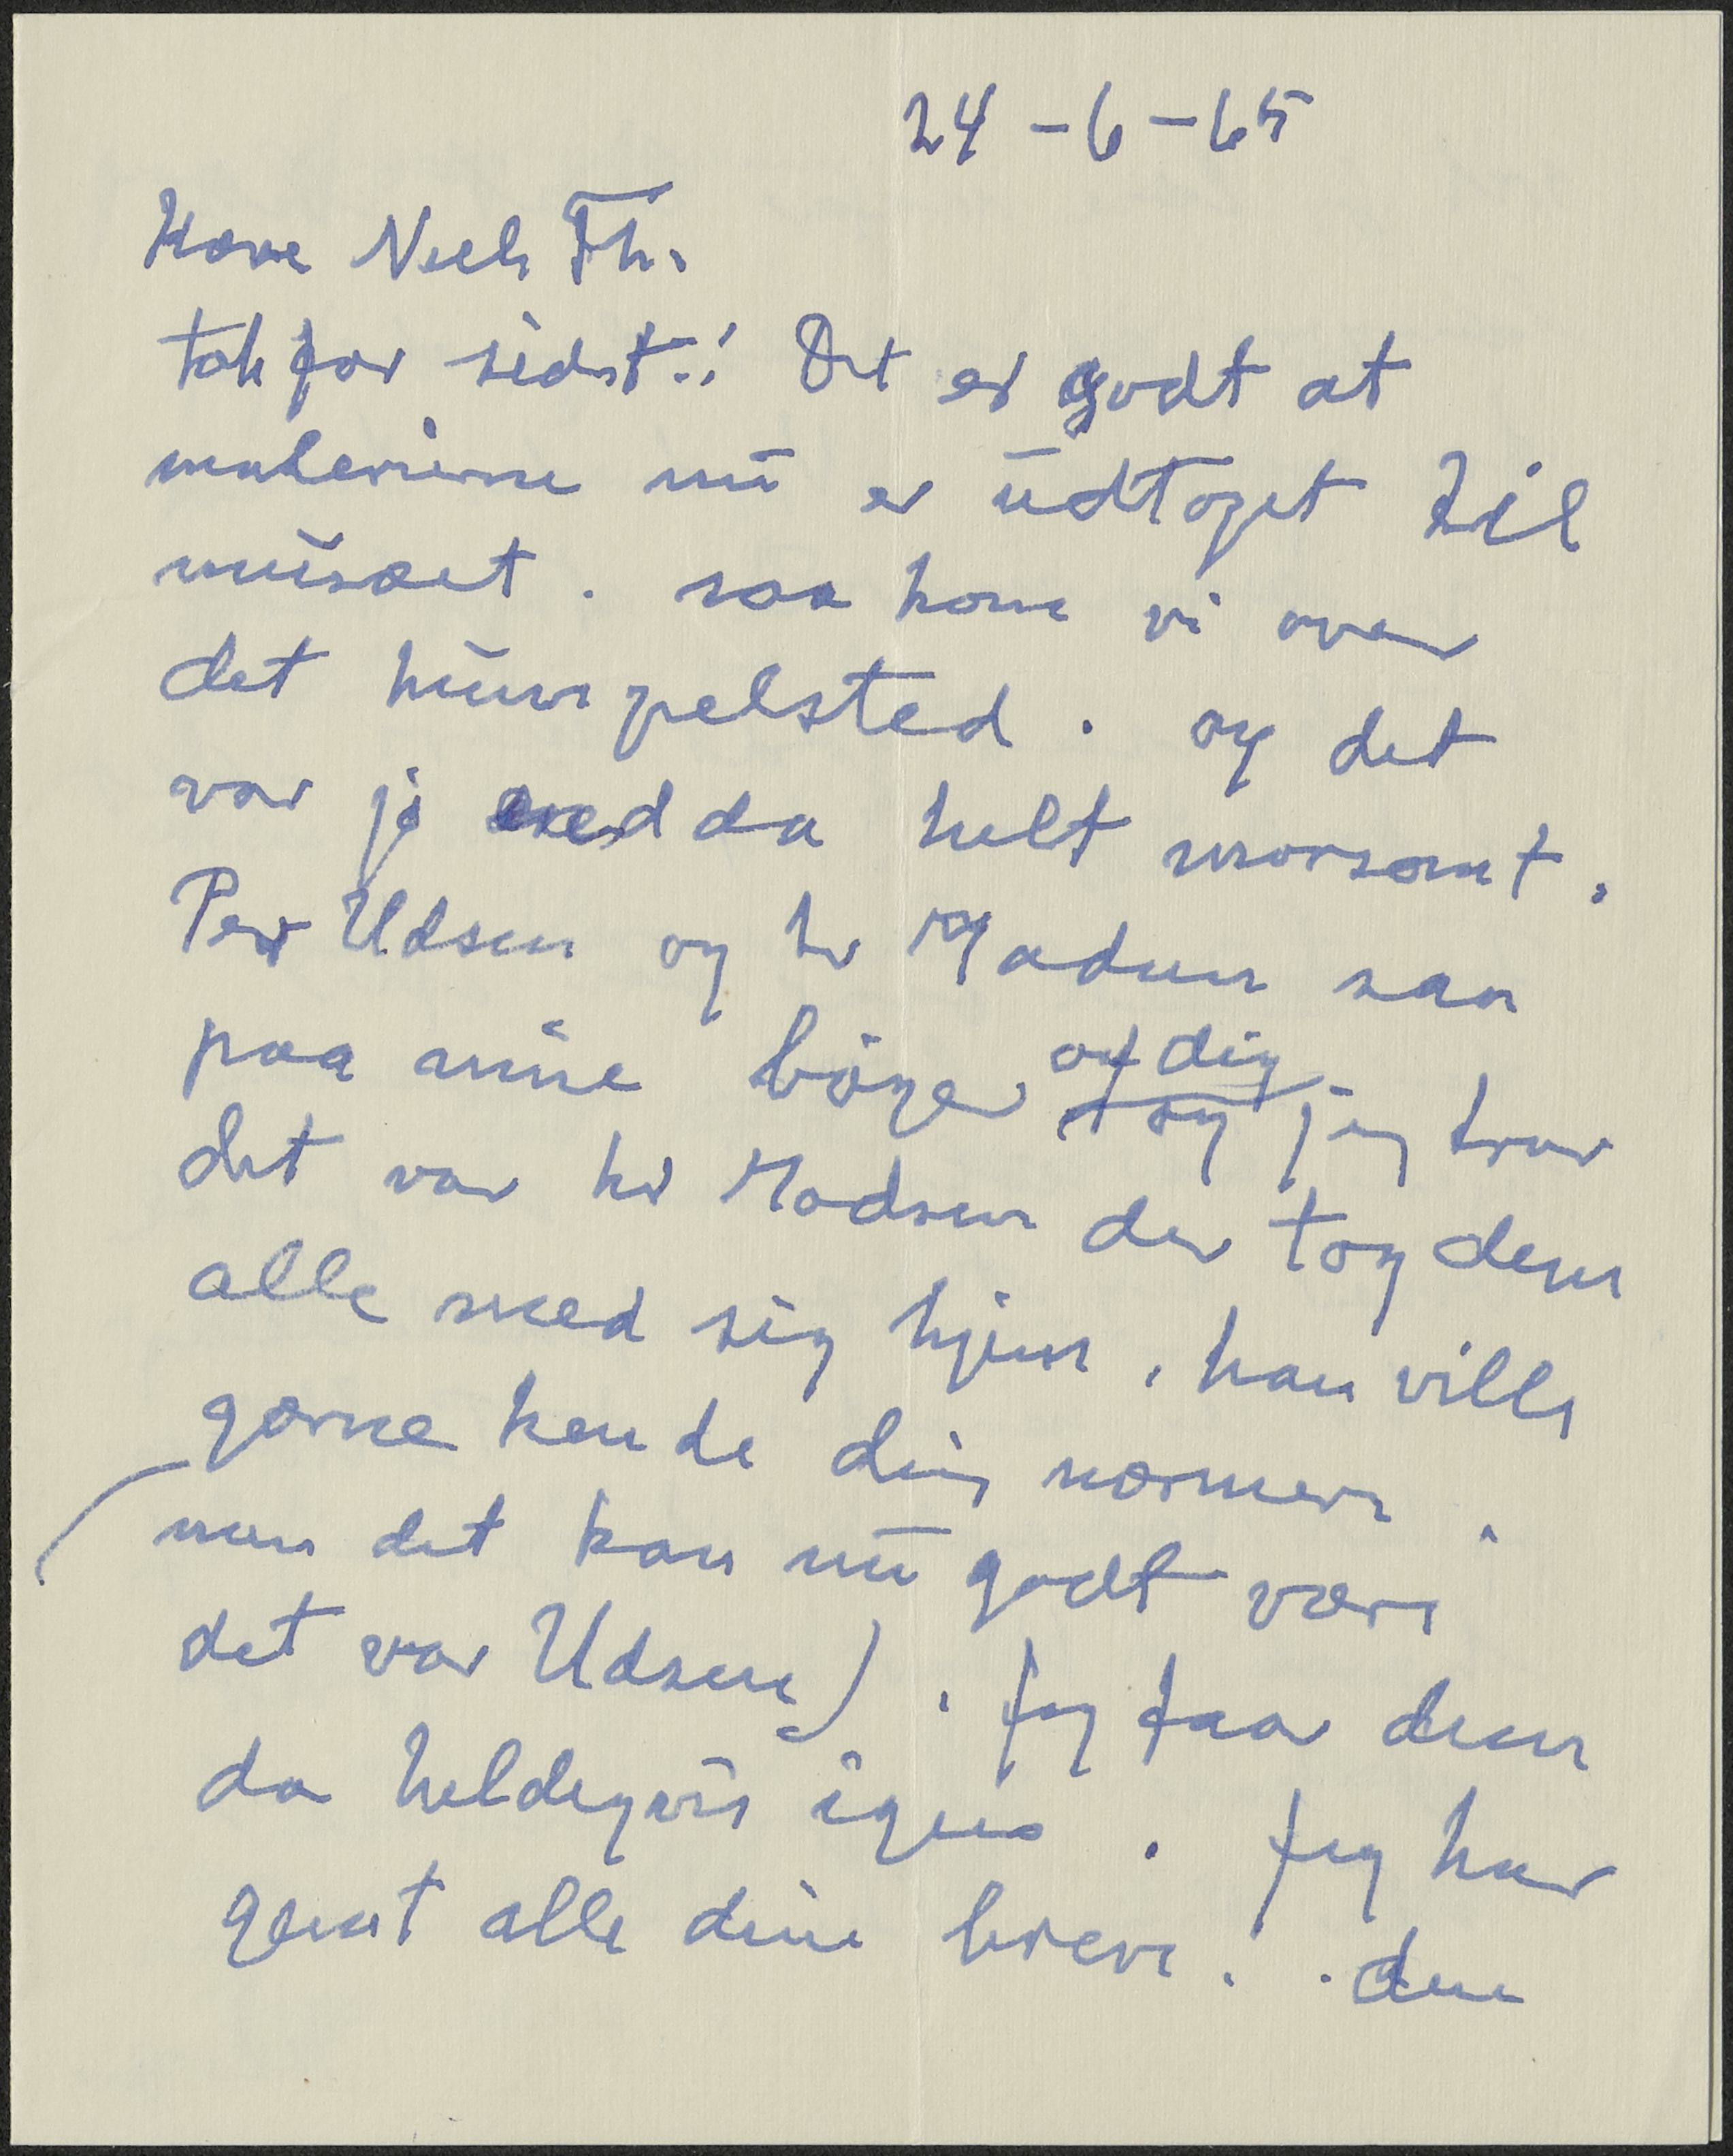 24-6-65
Kære Niels Th.
tak for sidst.! Det er godt at
malerierne nu er udtaget til
musæet. saa kom vi over
det humpelsted. og det
var jo endda helt morsomt.
Per Udsen og hr Madsen saa
paa mine bøger af dig og jeg tror
det var hr Madsen der tog dem
alle med sig hjem, han ville
gærne kende dig nærmere.
(men det kan nu godt være
det var Udsen). Jeg faar dem
da heldigvis igen. Jeg har
gemt alle dine breve. den